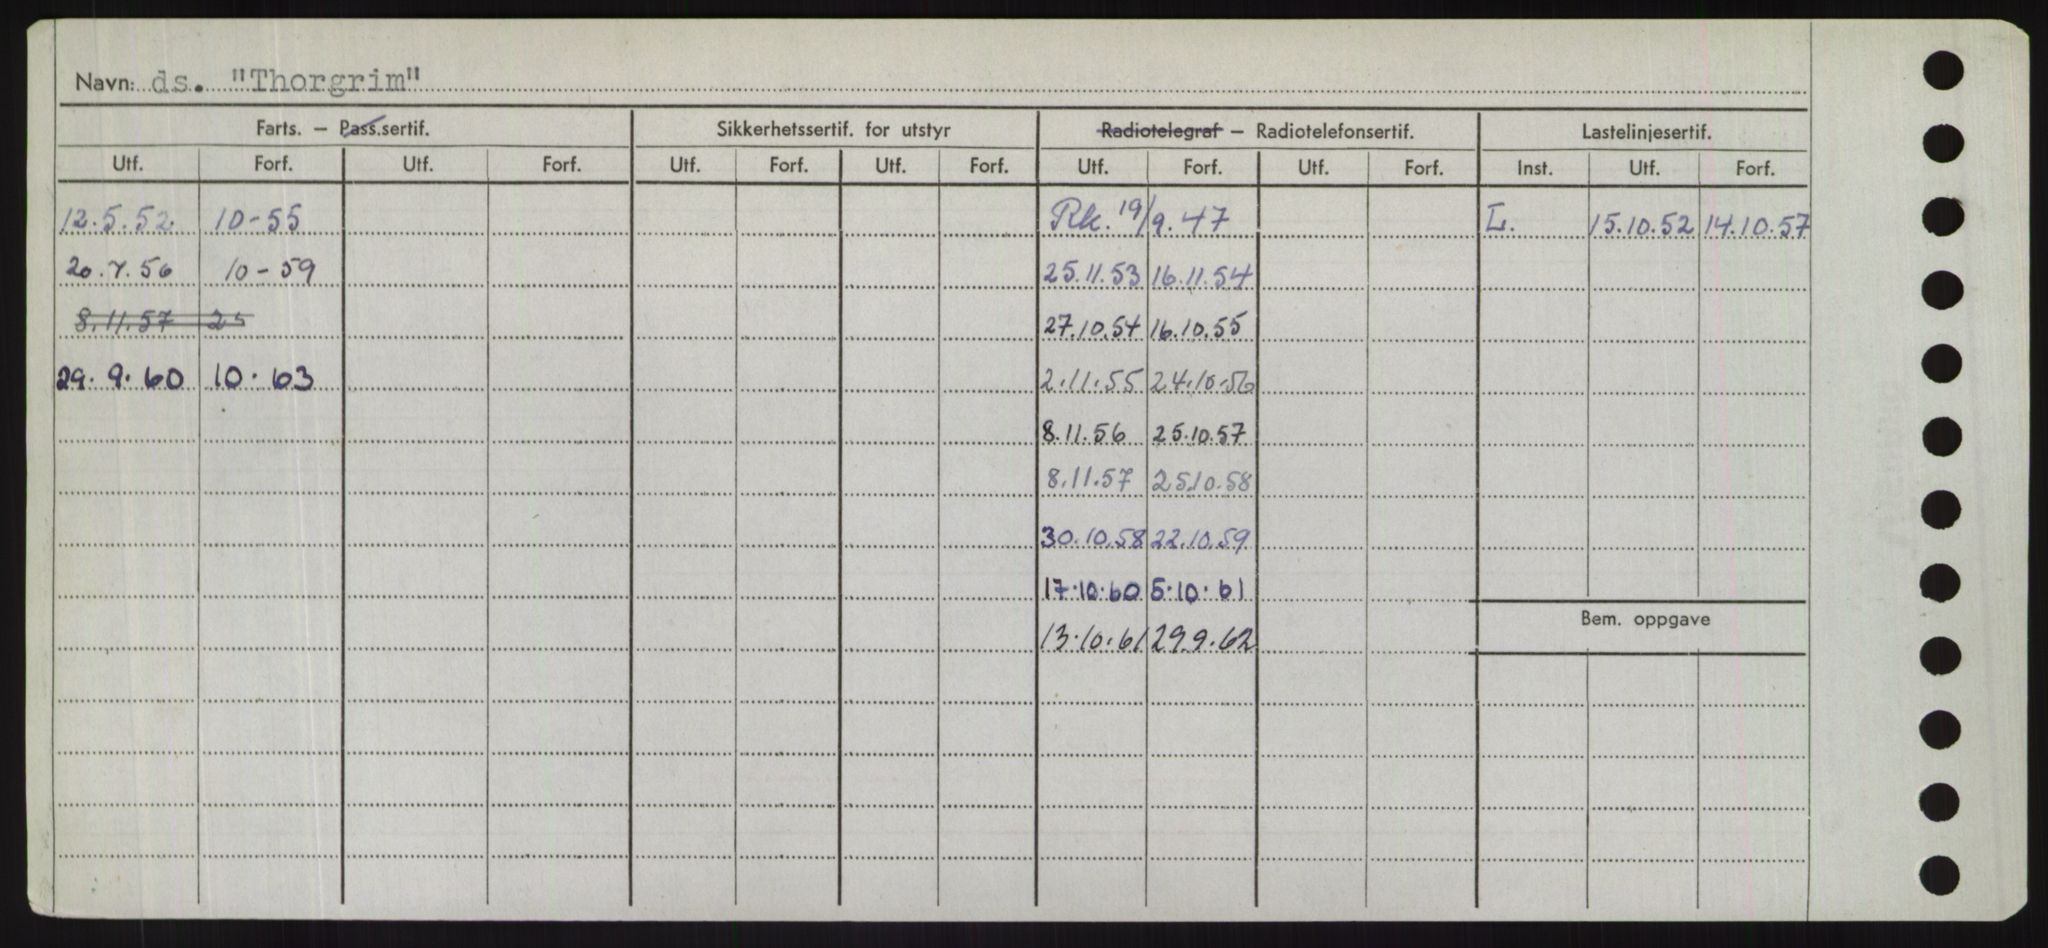 Navn: ds. "Thorgrim"
Farts. – Pass.sertif. Sikkerhetssertif. for utstyr Radiotelegraf – Radiotelefonsertif. Lastelinjesertif.
Utf. Forf. Utf. Forf. Utf. Forf. Utf. Forf. Utf. Forf. Utf. Forf. Inst. Utf. Forf.
12.5.52. 10-55 Rk. 19/9.47 L. 15.10.52 14.10.57
20.7.56 10-59 25.11.53 16.11.54
8.11.57 25 27.10.54 16.10.55
29.9.60 10.63 2.11.55 24.10-56
8.11.56 25.10.57
8.11.57 25.10.58
30.10.58 22.10.59
17.10.60 5.10.61
Bem. oppgave
13.10.61 29.9.62